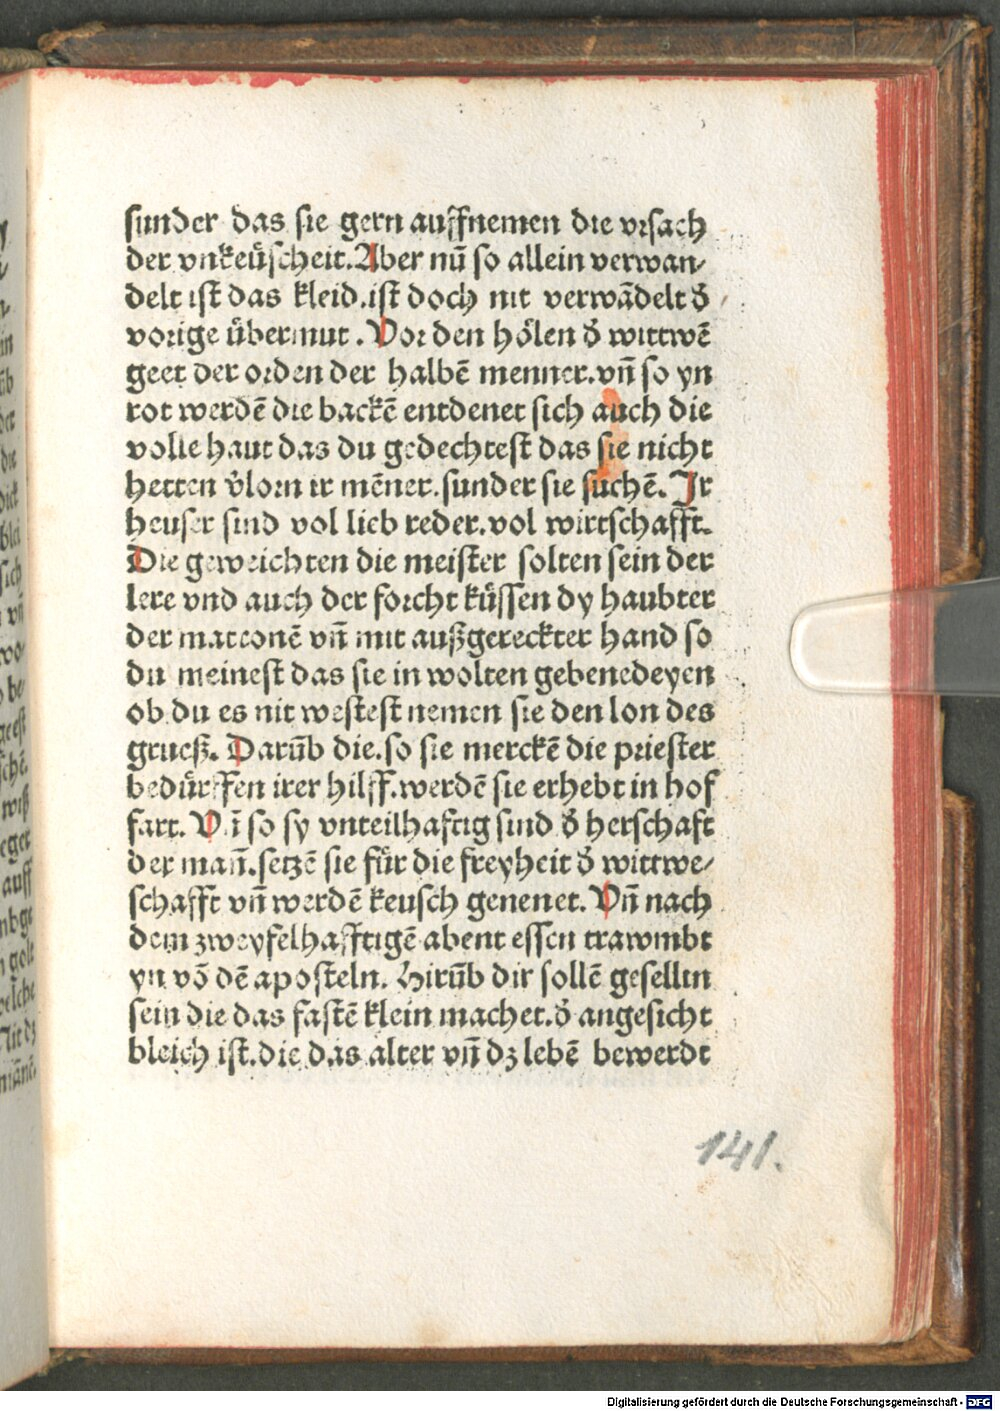 sunder das sie gern auffnemen die vrsach
der vnkeüscheit. Aber nū so allein verwan⸗
delt ist das kleid. ist doch nit verwādelt d̄
vorige übermut. Vor den hölen d̄ wittwē
geet der orden der halbē menner. vn̄ so yn
rot werdē die backē entdenet sich auch die
volle haut das du gedechtest das sie nicht
hetten v̓lorn ir mēner. sunder sie suchē. Ir
heuser sind vol lieb reder. vol wirtschafft.
Die geweichten die meister solten sein der
lere vnd auch der forcht küssen dy haubter
der matronē vn̄ mit außgereckter hand so
du meinest das sie in wolten gebenedeyen
ob du es nit westest nemen sie den lon des
grueß. Darūb die. so sie merckē die priester
bedürffen irer hilff. werdē sie erhebt in hof
fart. Vn̄ so sy vnteilhaftig sind d̄ herschaft
der man̄. setzē sie für die freyheit d̄ wittwe⸗
schafft vn̄ werdē keusch genenet. Vn̄ nach
dem zweyfelhafftigē abent essen trawmbt
yn vō dē aposteln. Hirūb dir sollē gesellin
sein die das fastē klein machet. d̄ angesicht
bleich ist. die das alter vn̄ dz lebē bewerdt
141.
Digitalisierung gefördert durch die Deutsche Forschungsgemeinschaft - DFG